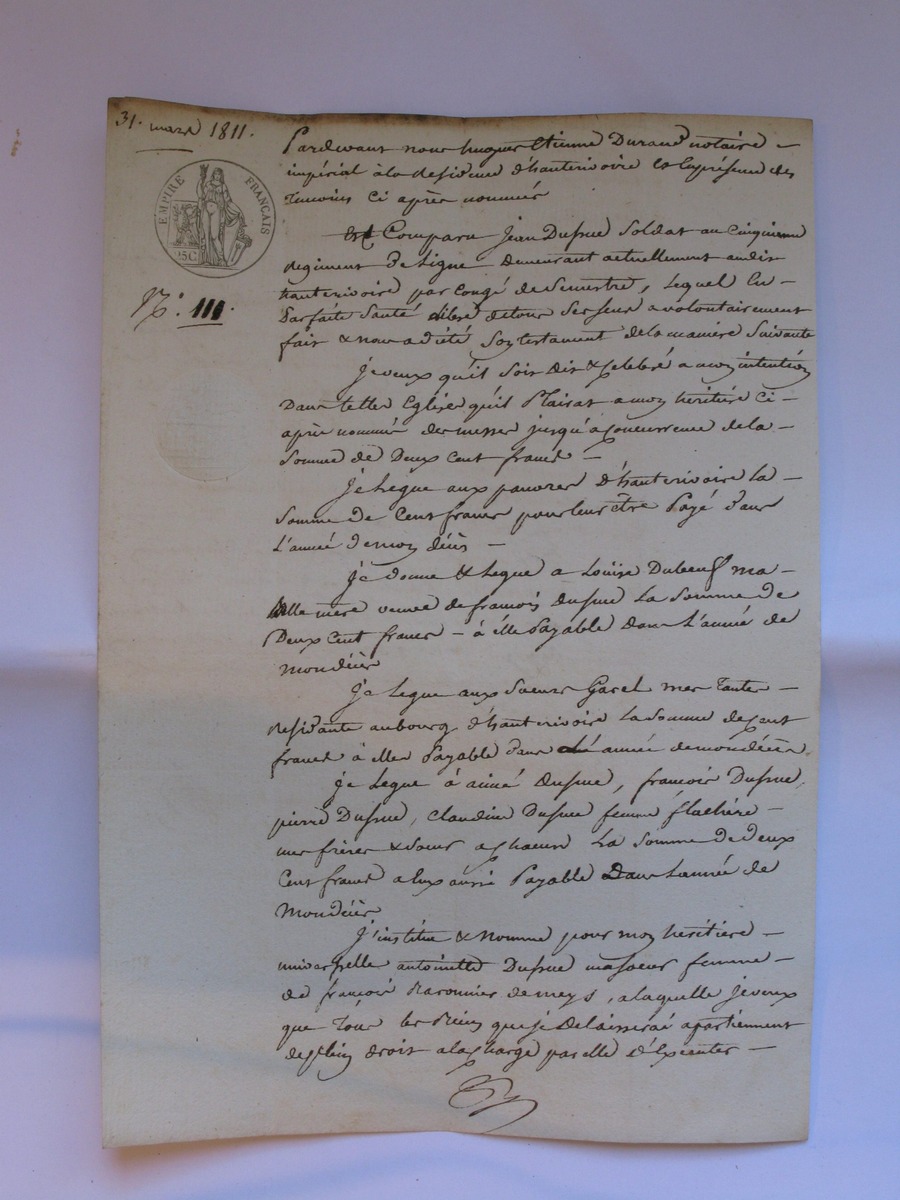 31. mars 1811.
EMPIRE FRANÇAIS
25C
N.° 111.
Pardevant nous hugues Etienne Durand notaire –
impérial à la Residence d'hauterivoire En la présence des
Temoins ci après nommés
Est Comparu Jean Dusrue Soldat au Cinquieme
Regiment De Ligne Demeurant actuellement audit
hauterivoire par Congé de Semestre, Lequel En –
Parfaite Santé libre detous Ses Sens a volontairement
fait & nous a dicté Son testament de la maniere Suivante
Je veux qu'il Soit Dit & Celebré a mon intention
Dans telles Eglises qu'il Plaira a mon héritière ci –
après nommée des messes jusqu'à Concurrence de la –
Somme de Deux Cent francs –
Je Legue aux pauvres d'hauterivoire La –
Somme de Cent francs pour leur être Payé Dans
L'année de mon décès –
Je donne & Legue a Louise Dubeuf ma –
Belle mere veuve de francois Dusrue La Somme de
Deux Cent francs – à elle Payable Dans L'année de
mon décès
Je Legue aux Soeurs Garel mes Tantes –
Residante au bourg d'hauterivoire La Somme de Cent
francs à elles Payable Dans L'année de mon décès
Je Legue à aimé Dusrue, francois Dusrue,
pierre Dusrue, Claudine Dusrue femme flachère –
mes frères & Soeur a chacun La Somme de deux
Cent francs a Eux aussi Payable Dans L'année de
Mon décès
J'institue & Nomme pour mon héritière –
universelle antoinette Dusrue ma Soeur femme –
de francois de meys, a laquelle je veux
que Tous les Biens que je Delaisserai apartiennent
de plein droit a la Charge par elle d'Executer –